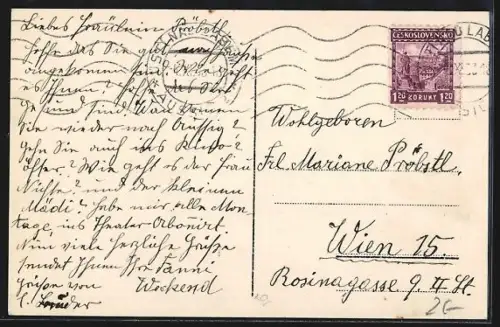 Liebes Fräulein Pröbstl
Hoffe das Sie gut
angekommen sind. Wie geht
es Ihnen? Hoffe das Sie
gesund sind. Wan kommen
Sie wieder nach Aussig?
Gehn Sie auch ins Kino
öfter? Wie geht es der Frau
Nichte? und der kleinen
Mädi? habe mir alle Mon-
tage, ins Theater Abonirt.
Nun viele herzliche Grüsse
sendet Ihnen Ihre Fanni
Grüsse von Wockend
Bruder
ČESKOSLOVENSKO
1·20 KORUNY 1·20
Wohlgeboren
Frl. Mariane Pröbstl.
Wien 15.
Rosinagasse 9. II St.
25-